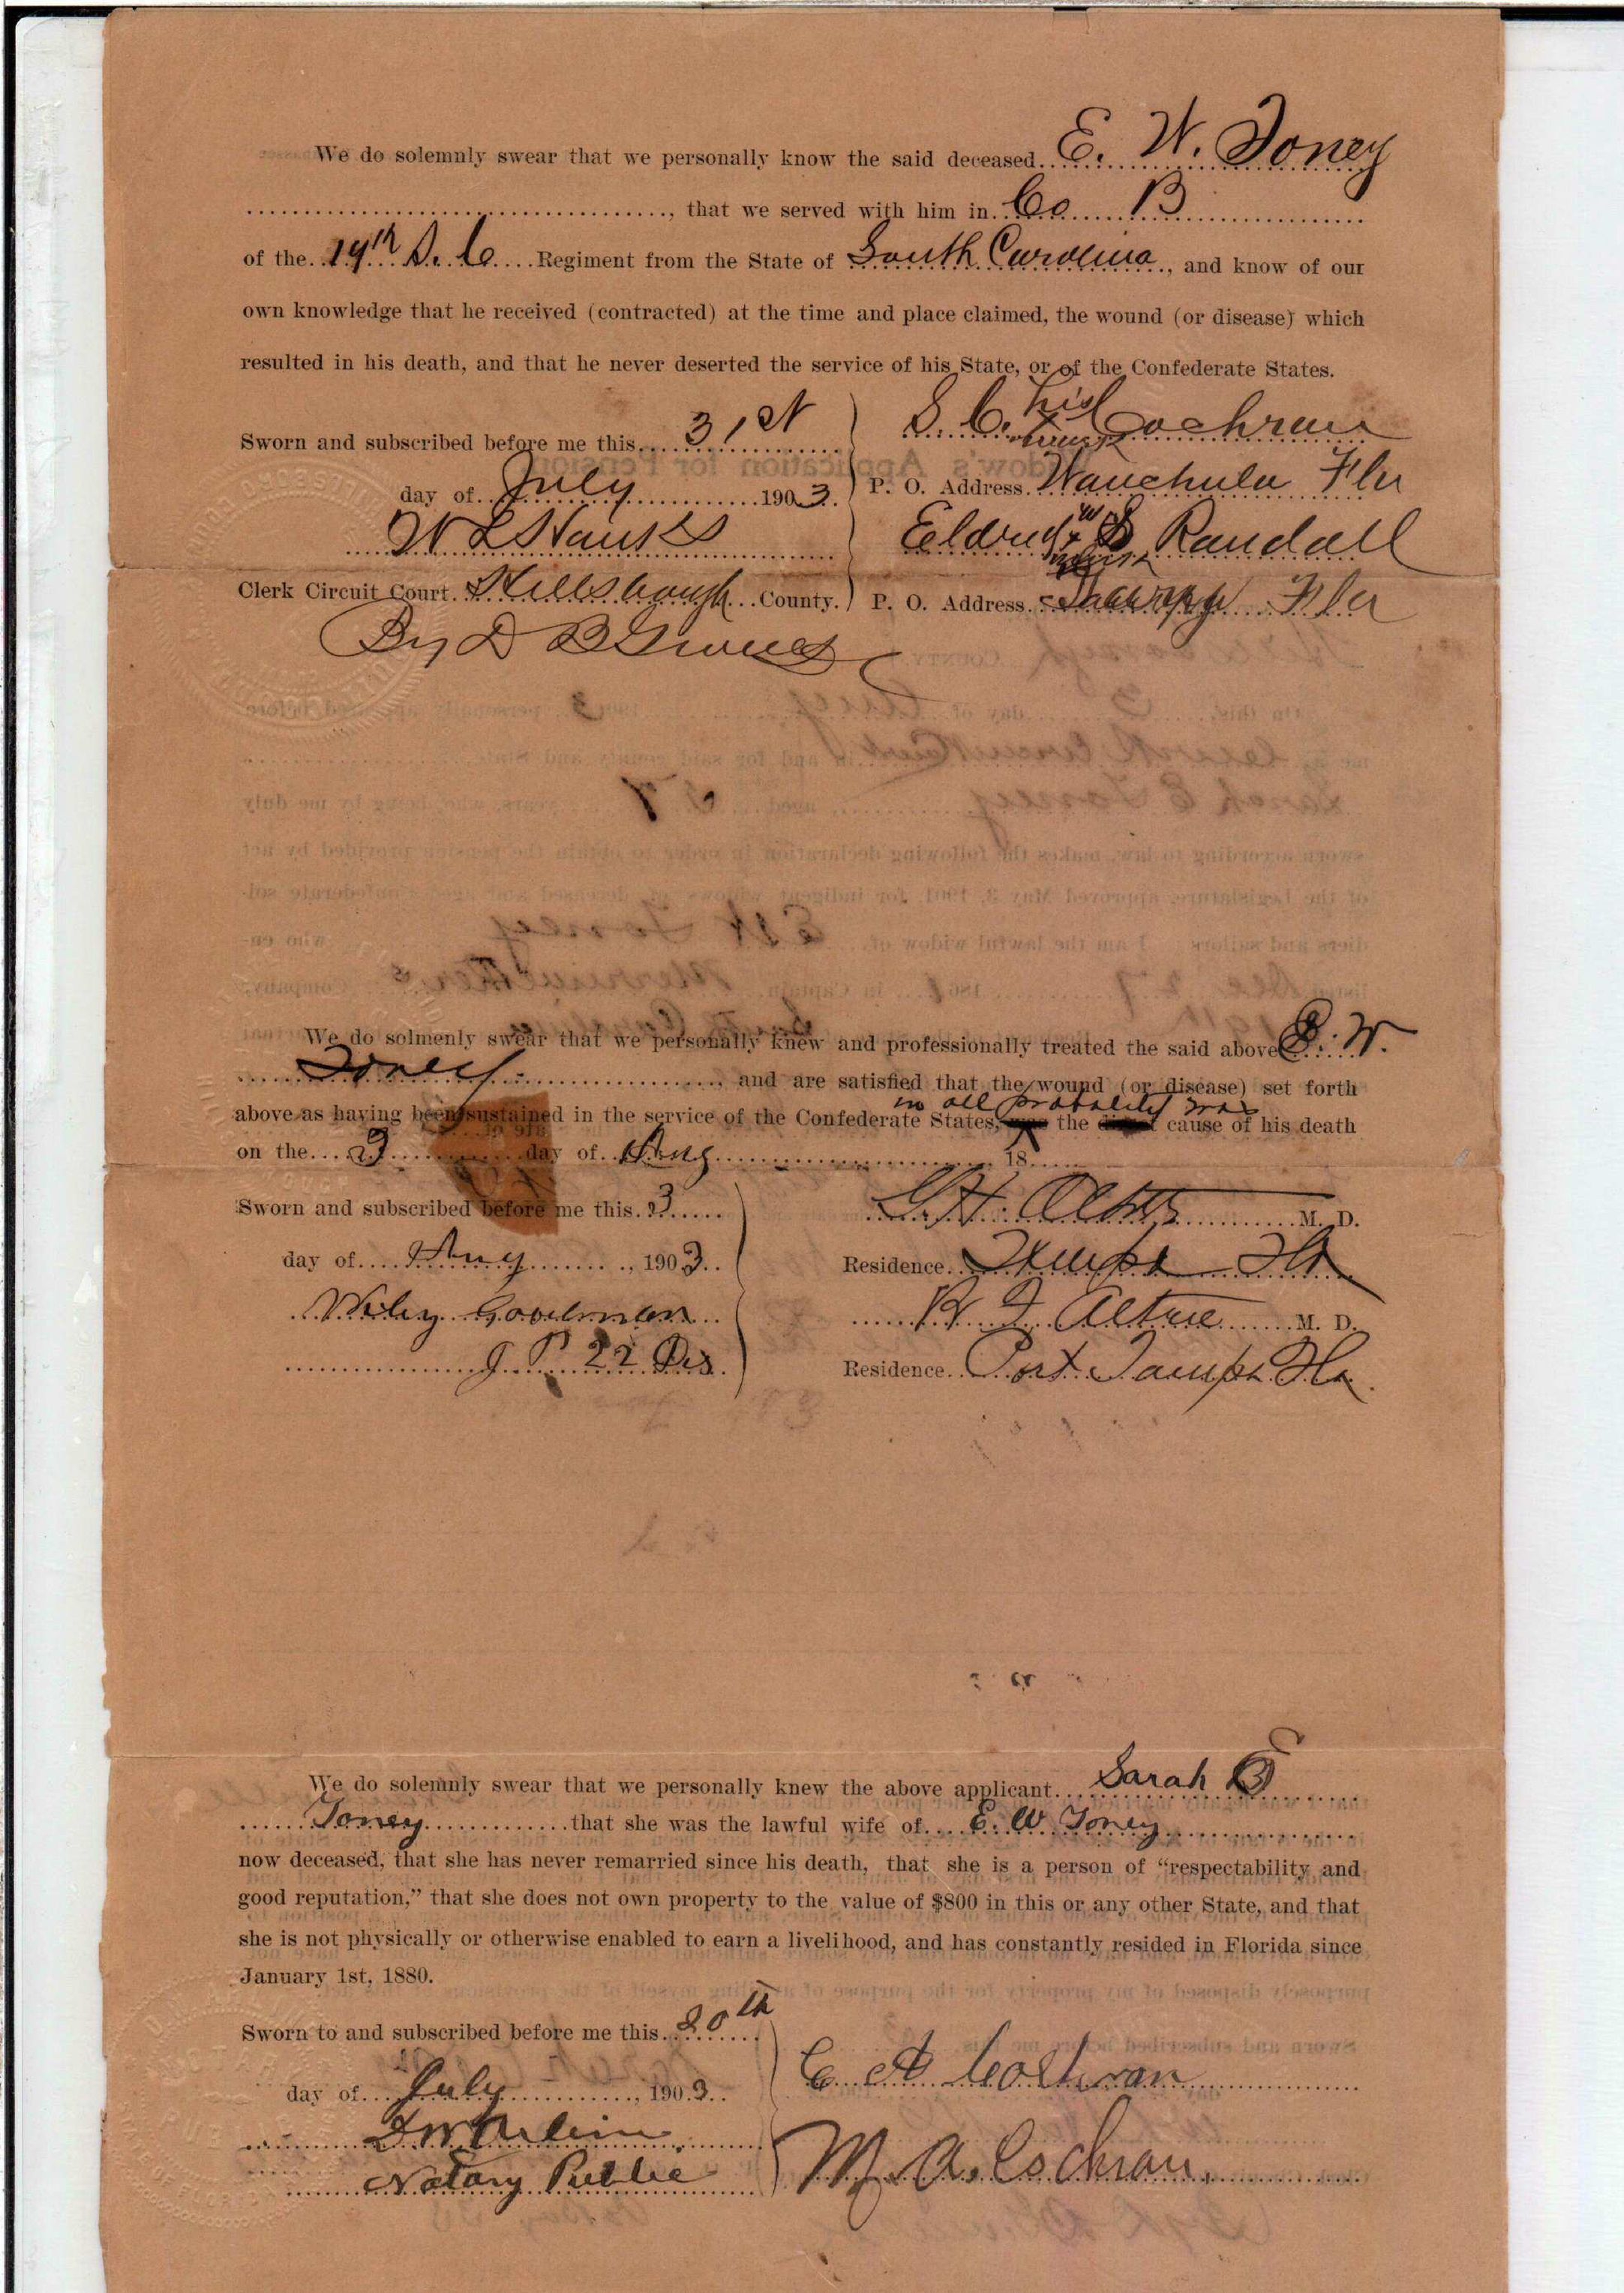 We do solemnly swear that we personally know the said deceased E. W. Toney
, that we served with him in Co B
of the 19th S. C. Regiment from the State of South Carolina, and know of our
own knowledge that he received (contracted) at the time and place claimed, the wound (or disease) which
resulted in his death, and that he never deserted the service of his State, or of the Confederate States.
Sworn and subscribed before me this 31st
day of July 1903.
Clerk Circuit Court Hillsborough County.
S. C. his x mark Cochran
P. O. Address Wauchula Fla
x mark Randall
P. O. Address Fla
Widow's Application for Pension
We do solmenly swear that we personally knew and professionally treated the said above E. W.
Toney, and are satisfied that the wound (or disease) set forth
in all probability was
above as having been sustained in the service of the Confederate States, the cause of his death
on the 3 day of Aug 18
Sworn and subscribed before me this 3
day of Aug, 1903.
Wiley Goodman
J P 22 Dis
M. D.
Residence Tampa Fla
M. D.
Residence Port Tampa Fla.
We do solemnly swear that we personally knew the above applicant Sarah E
Toney that she was the lawful wife of E. W Toney
now deceased, that she has never remarried since his death, that she is a person of “respectability and
good reputation,” that she does not own property to the value of $800 in this or any other State, and that
she is not physically or otherwise enabled to earn a livelihood, and has constantly resided in Florida since
January 1st, 1880.
Sworn to and subscribed before me this 20th
day of July, 1903.
Notary Public
C A Cochran
M. A. Cochran